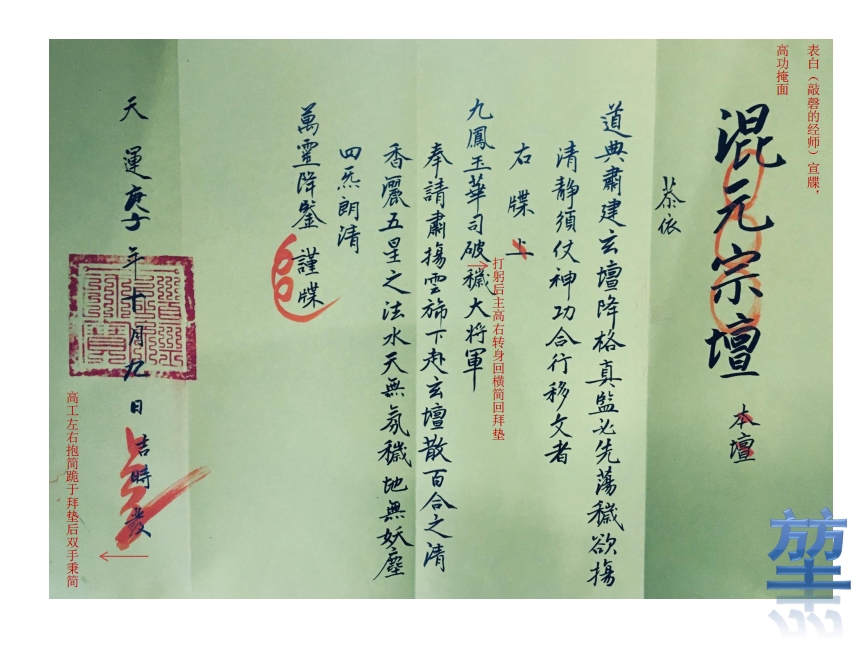 表白（敲磬的经师）宣牒，
高功掩面
混元宗壇 本壇
恭依
道典肅建玄壇降格真監必先蕩穢欲揚
清静須仗神功合行移文者
右牒上
九鳳玉華司破穢大將軍
打躬后主高右转身回横简回拜垫
奉請肅揚雲旆下赴玄壇散百合之清
香灑五星之法水天無氛穢地無妖塵
四炁朗清
萬靈降鑒 謹牒
天運庚子年十月九日吉時發
高工左右抱简跪于拜垫后双手秉简